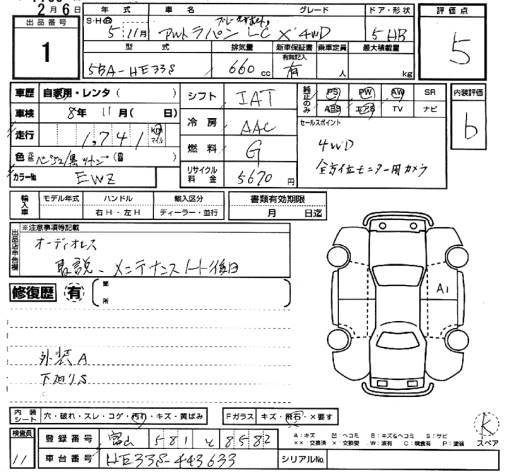 2月6日
出品番号 年式 車名 グレード ドア・形状 評価点
1 S・H 5年11月 アルトラパン LC X 4WD 5HB 5
型式 排気量 新車保証書 乗車定員 最大積載量
5BA-HE33S 660cc 有 人 kg
車歴 自家用・レンタ シフト IAT 純正のみ PS PW AW SR 内装評価
車検 8年11月(日) 冷房 AAC TV ナビ b
走行 1,741 km マイル 燃料 G セールスポイント
4WD
色 ベージュ/黒ツートン リサイクル料金 5670円 全方位モニター用カメラ
カラーNo. EWZ
輸入車 モデル年式 ハンドル 輸入区分 書類有効期限
年 右H・左H ディーラー・並行 月 日迄
出品店申告欄 ※注意事項等記載
オーディオレス
取説、メンテナンスノート後日
修復歴 有 箇所
A1
外装A
下回りS
内装シート 穴・破れ・スレ・コゲ・汚れ・キズ・黄ばみ Fガラス キズ・飛石・×要す
検査員 11 登録番号 富山 581 と 8582
車台番号 HE33S-443633 シリアルNo.
A:キズ U:ヘコミ B:キズ&ヘコミ S:サビ
××:交換済 ×:交換要 W:波有 C:腐食有 P:塗装
K
スペア